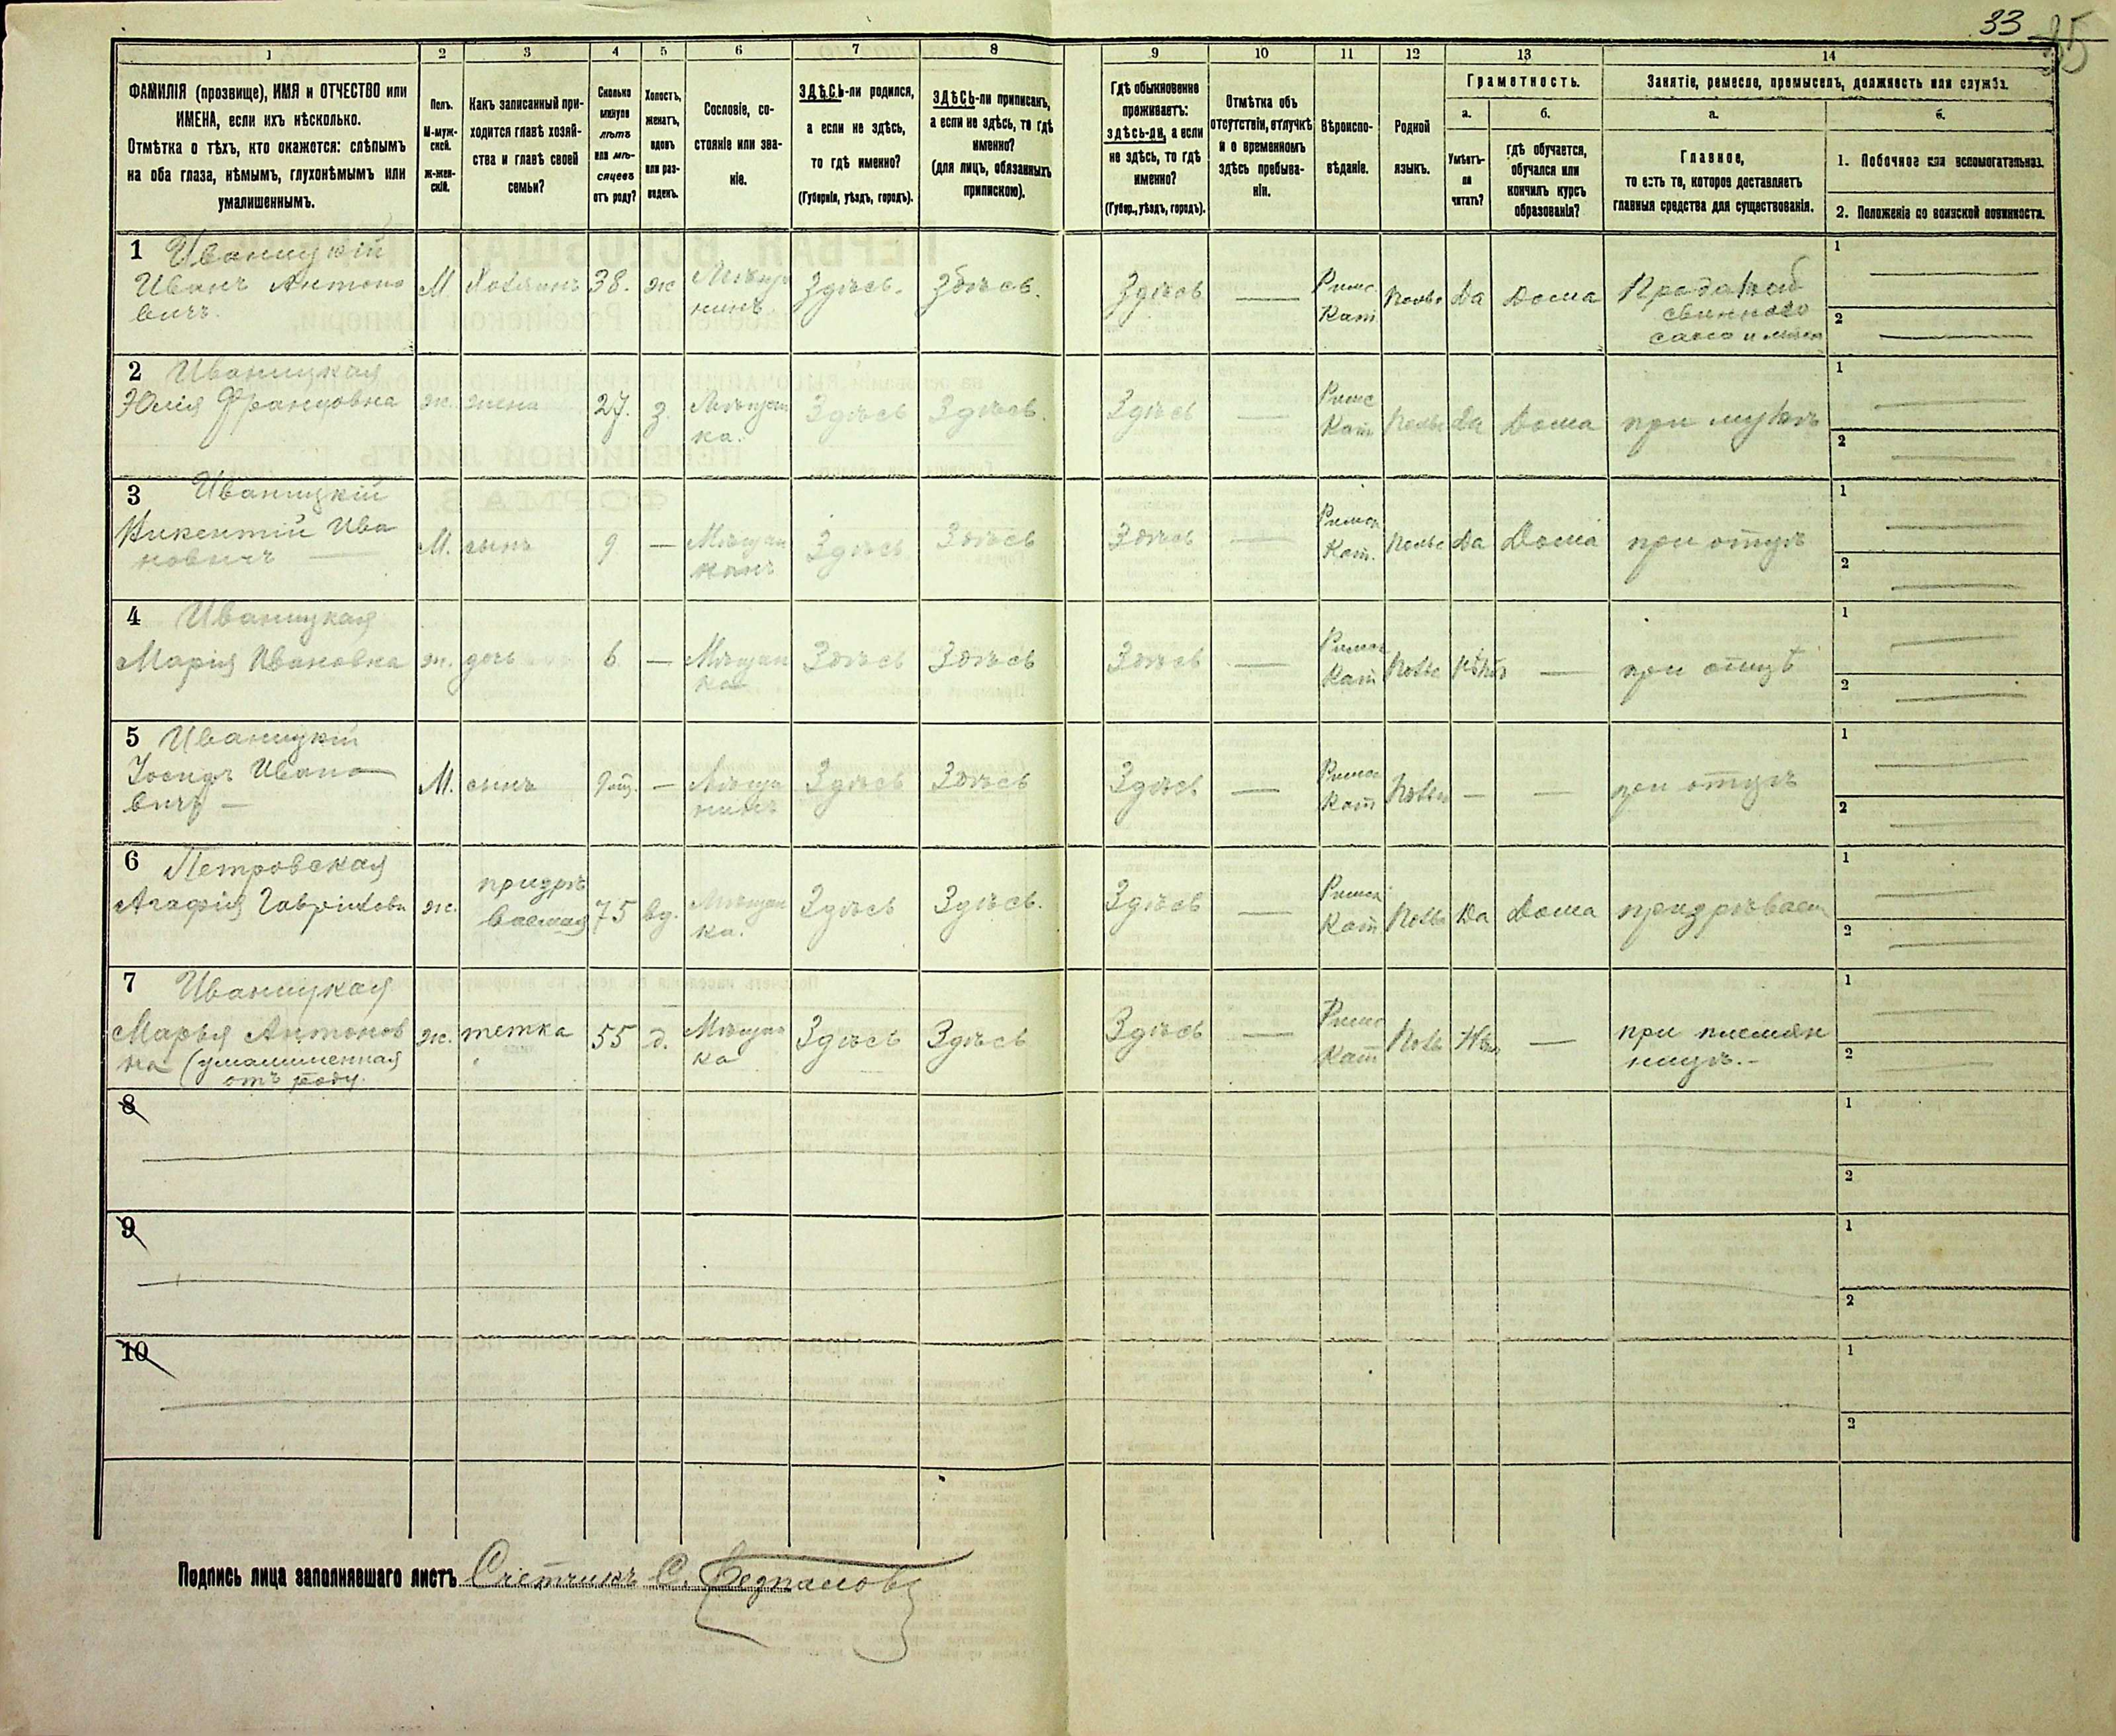 33
35
1 2 3 4 5 6 7 8 9 10 11 12 13 14
ФАМИЛІЯ (прозвище), ИМЯ и ОТЧЕСТВО или
ИМЕНА, если ихъ нѣсколько.
Отмѣтка о тѣхъ, кто окажется: слѣпымъ
на оба глаза, нѣмымъ, глухонѣмымъ или
умалишеннымъ.
Полъ.
М-муж-
ской.
Ж-жен-
скій.
Какъ записанный при-
ходится главѣ хозяй-
ства и главѣ своей
семьи?
Сколько
минуло
лѣтъ
или мѣ-
сяцевъ
отъ роду?
Холостъ,
женатъ,
вдовъ
или раз-
веденъ.
Сословіе, со-
стояніе или зва-
ніе.
ЗДѢСЬ-ли родился,
а если не здѣсь,
то гдѣ именно?
(Губернія, уѣздъ, городъ).
ЗДѢСЬ-ли приписанъ,
а если не здѣсь, то гдѣ
именно?
(для лицъ, обязанныхъ
припискою).
Гдѣ обыкновенно
проживаетъ:
здѣсь-ли, а если
не здѣсь, то гдѣ
именно?
(Губер., уѣздъ, городъ).
Отмѣтка объ
отсутствіи, отлучкѣ
и о временномъ
здѣсь пребыва-
ніи.
Вѣроиспо-
вѣданіе.
Родной
языкъ.
Грамотность.
а.
Умѣетъ-
ли
читать?
б.
гдѣ обучается,
обучался или
кончилъ курсъ
образованія?
Занятіе, ремесло, промыселъ, должность или служба.
а.
Главное,
то есть то, которое доставляетъ
главныя средства для существованія.
б.
1. Побочное или вспомогательное.
2. Положеніе по воинской повинности.
1 Иваницкій
Иванъ Антоно М Хозяинъ 38. ж Мѣща Здѣсь. Здѣсь. Здѣсь — Римс. Польс Да Дома Продажей
вичъ. нинъ Кат. свинного
сало и мясо
1
2
2 Иваницкая
Юлія Францовна ж. жена 27. з. Мѣщан Здѣсь Здѣсь. Здѣсь — Римс Польс Да Дома при мужѣ
ка. Кат
1
2
3 Иваницкій
Викентій Ива М. сынъ 9 — Мѣщан Здѣсь Здѣсь Здѣсь — Римск Польс Да Дома при отцѣ
новичъ Кат.
1
2
4 Иваницкая
Марія Ивановна ж. дочь 6 — Мѣщан Здѣсь Здѣсь Здѣсь — Римск Польс Нѣтъ — при отцѣ
ка Кат
1
2
5 Иваницкій
Іосифъ Ивано М. сынъ — Мѣща Здѣсь Здѣсь Здѣсь — Римск Польс — — при отцѣ
вичъ — нинъ Кат
1
2
6 Петровская
Агафія ж. призрѣ 75 вд. Мѣщан Здѣсь Здѣсь. Здѣсь — Римск Польс Да Дома призрѣваем
ваемая ка. Кат
1
2
7 Иваницкая
Марья Антонов ж. тетка 55 д. Мѣщан Здѣсь Здѣсь Здѣсь — Римс Поль Нѣтъ — при племян
на (умалишенная ка Кат ницѣ.-
отъ роду.
1
2
8
1
2
9
1
2
10
1
2
Подпись лица заполнявшаго листъ Счетчикъ С.